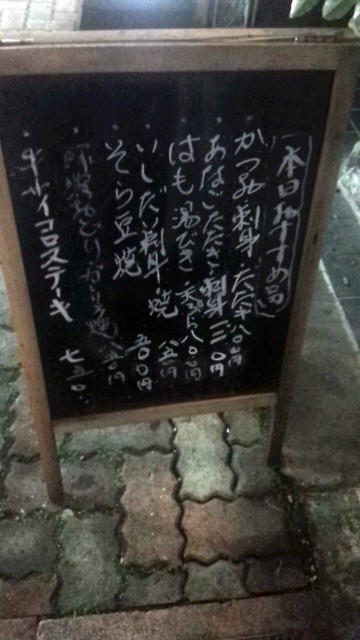 本日おすすめ品
かつお刺身 たたき 八〇〇円
あなごたたき 刺身 一二〇〇円
はも湯びき 天ぷら 八〇〇円
いしだい刺身 焼 八五〇円
そら豆焼 五〇〇円
阿波尾どり 焼 八五〇円
牛サイコロステーキ 七五〇